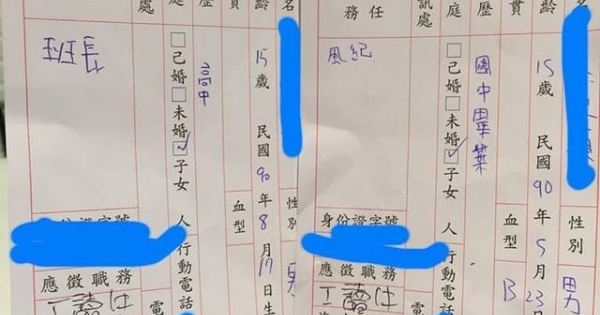 名
齡 15歲 民國90年5月23日
性別 男
貫
血型 B
歷 國中畢業
庭 □己婚□未婚☑子女 人
訊處
行動電話
任務
風紀
身份證字號
應徵職務
工讀仕
電
名
齡 15歲 民國90年8月17日生
性別 男
貫
血型
歷 高中
庭 □己婚□未婚☑子女 人
處
行動電話
班長
應徵職務
工讀仕
電